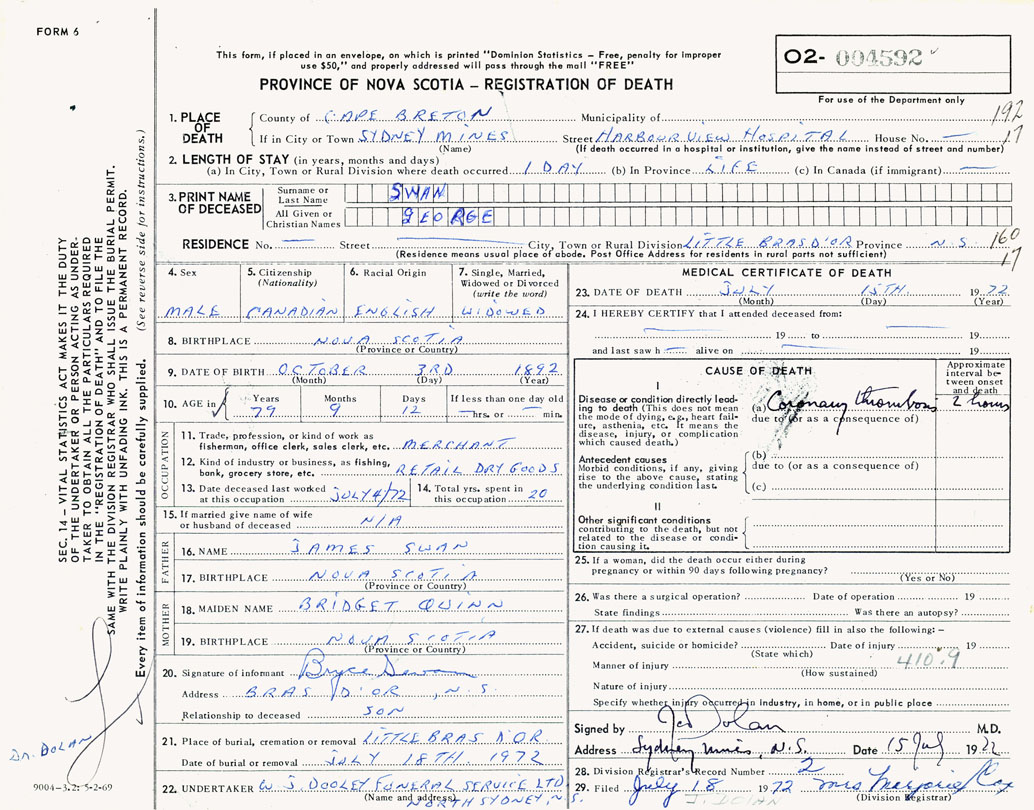 FORM 6
This form, if placed in an envelope, on which is printed "Dominion Statistics – Free, penalty for improper
use $50," and properly addressed will pass through the mail "FREE"
PROVINCE OF NOVA SCOTIA – REGISTRATION OF DEATH
O2- 004592
For use of the Department only
1. PLACE OF DEATH
County of CAPE BRETON Municipality of
192
If in City or Town SYDNEY MINES Street HARBOUR VIEW HOSPITAL House No. —
17
(Name) (If death occurred in a hospital or institution, give the name instead of street and number)
2. LENGTH OF STAY (in years, months and days)
(a) In City, Town or Rural Division where death occurred 1 DAY (b) In Province LIFE (c) In Canada (if immigrant) —
3. PRINT NAME OF DECEASED
Surname or Last Name SWAN
All Given or Christian Names GEORGE
RESIDENCE No. — Street — City, Town or Rural Division LITTLE BRAS D'OR Province N.S.
160
17
(Residence means usual place of abode. Post Office Address for residents in rural parts not sufficient)
4. Sex
MALE
5. Citizenship
(Nationality)
CANADIAN
6. Racial Origin
ENGLISH
7. Single, Married,
Widowed or Divorced
(write the word)
WIDOWED
8. BIRTHPLACE NOVA SCOTIA
(Province or Country)
9. DATE OF BIRTH OCTOBER 3RD 1892
(Month) (Day) (Year)
10. AGE in
Years 79
Months 9
Days 12
If less than one day old
— hrs. or — min.
OCCUPATION
11. Trade, profession, or kind of work as
fisherman, office clerk, sales clerk, etc. MERCHANT
12. Kind of industry or business, as fishing,
bank, grocery store, etc. RETAIL DRY GOODS
13. Date deceased last worked
at this occupation JULY 4/72
14. Total yrs. spent in
this occupation 20
15. If married give name of wife
or husband of deceased N/A
FATHER
16. NAME JAMES SWAN
17. BIRTHPLACE NOVA SCOTIA
(Province or Country)
MOTHER
18. MAIDEN NAME BRIDGET QUINN
19. BIRTHPLACE NOVA SCOTIA
(Province or Country)
20. Signature of informant Bryce Swan
Address BRAS D'OR, N.S.
Relationship to deceased SON
21. Place of burial, cremation or removal LITTLE BRAS D'OR
Date of burial or removal JULY 18TH 1972
22. UNDERTAKER W J DOOLEY FUNERAL SERVICE LTD
(Name and address) NORTH SYDNEY, N.S.
MEDICAL CERTIFICATE OF DEATH
23. DATE OF DEATH JULY 15TH 1972
(Month) (Day) (Year)
24. I HEREBY CERTIFY that I attended deceased from:
— 19 to — 19
and last saw h — alive on — 19
CAUSE OF DEATH
Approximate
interval be-
tween onset
and death
I
Disease or condition directly lead-
ing to death (This does not mean
the mode of dying, e.g., heart fail-
ure, asthenia, etc. It means the
disease, injury, or complication
which caused death.)
(a) Coronary thrombosis 2 hours
due to (or as a consequence of)
Antecedent causes
Morbid conditions, if any, giving
rise to the above cause, stating
the underlying condition last.
(b)
due to (or as a consequence of)
(c)
II
Other significant conditions
contributing to the death, but not
related to the disease or condi-
tion causing it.
25. If a woman, did the death occur either during
pregnancy or within 90 days following pregnancy?
(Yes or No)
26. Was there a surgical operation? Date of operation 19
State findings Was there an autopsy?
27. If death was due to external causes (violence) fill in also the following: –
Accident, suicide or homicide? Date of injury 19
(State which)
410.9
Manner of injury
(How sustained)
Nature of injury
Specify whether injury occurred in industry, in home, or in public place
Signed by Ted Dolan M.D.
Address Sydney Mines, N.S. Date 15 July 1972
28. Division Registrar's Record Number 2
29. Filed July 18 1972 Mrs Marjorie Cox
(Division Registrar)
J. DOLAN
SEC. 14 – VITAL STATISTICS ACT MAKES IT THE DUTY
OF THE UNDERTAKER OR PERSON ACTING AS UNDER-
TAKER TO OBTAIN ALL THE PARTICULARS REQUIRED
IN THE "REGISTRATION OF DEATH" AND TO FILE THE
SAME WITH THE DIVISION REGISTRAR WHO SHALL ISSUE THE BURIAL PERMIT.
WRITE PLAINLY WITH UNFADING INK. THIS IS A PERMANENT RECORD.
Every item of information should be carefully supplied. (See reverse side for instructions.)
Dr. DOLAN
9004-3.2: 5-2-69